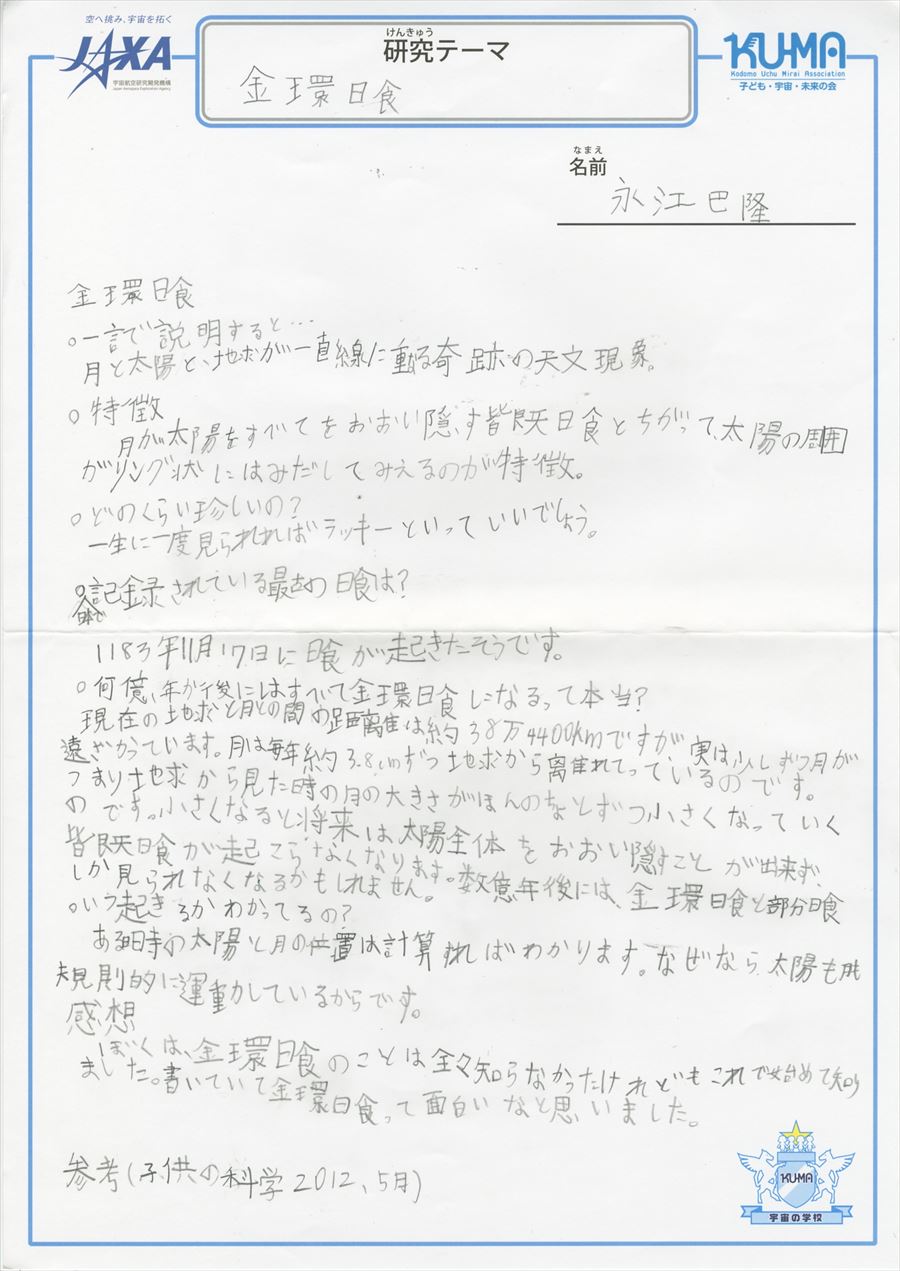 空へ挑み、宇宙を拓く
JAXA
宇宙航空研究開発機構
Japan Aerospace Exploration Agency
けんきゅう
研究テーマ
金環日食
KU-MA
Kodomo Uchu Mirai Association
子ども・宇宙・未来の会
なまえ
名前
永江巴隆
金環日食
○一言で説明すると…
月と太陽と、地球が一直線に重る奇跡の天文現象。
○特徴
月が太陽をすべてをおおい隠す皆既日食とちがって、太陽の周囲
がリング状にはみだしてみえるのが特徴。
○どのくらい珍しいの?
一生に一度見られればラッキーといっていいでしょう。
○記録されている最古の日食は?
日本で
1183年11月17日に日食が起きたそうです。
○何億、年か後にはすべて金環日食になるって本当?
現在の地球と月との間の距離は約38万4400kmですが、実は少しずつ月が
遠ざかっています。月は毎年約3.8cmずつ地球から離れてっているのです。
つまり地球から見た時の月の大きさがほんのちょとずつ小さくなっていく
のです。小さくなると将来は太陽全体をおおい隠すことが出来ず、
皆既日食が起こらなくなります。数億年後には、金環日食と部分日食
しか見られなくなるかもしれません。
○いつ起きるかわかってるの?
ある日時の太陽と月の位置は計算すればわかります。なぜなら、太陽も月も
規則的に運動しているからです。
感想
ぼくは、金環日食のことは全々知らなかったけれどもこれで始めて知り
ました。書いていて金環日食って面白いなと思いました。
参考(子供の科学2012、5月)
KU-MA
宇宙の学校